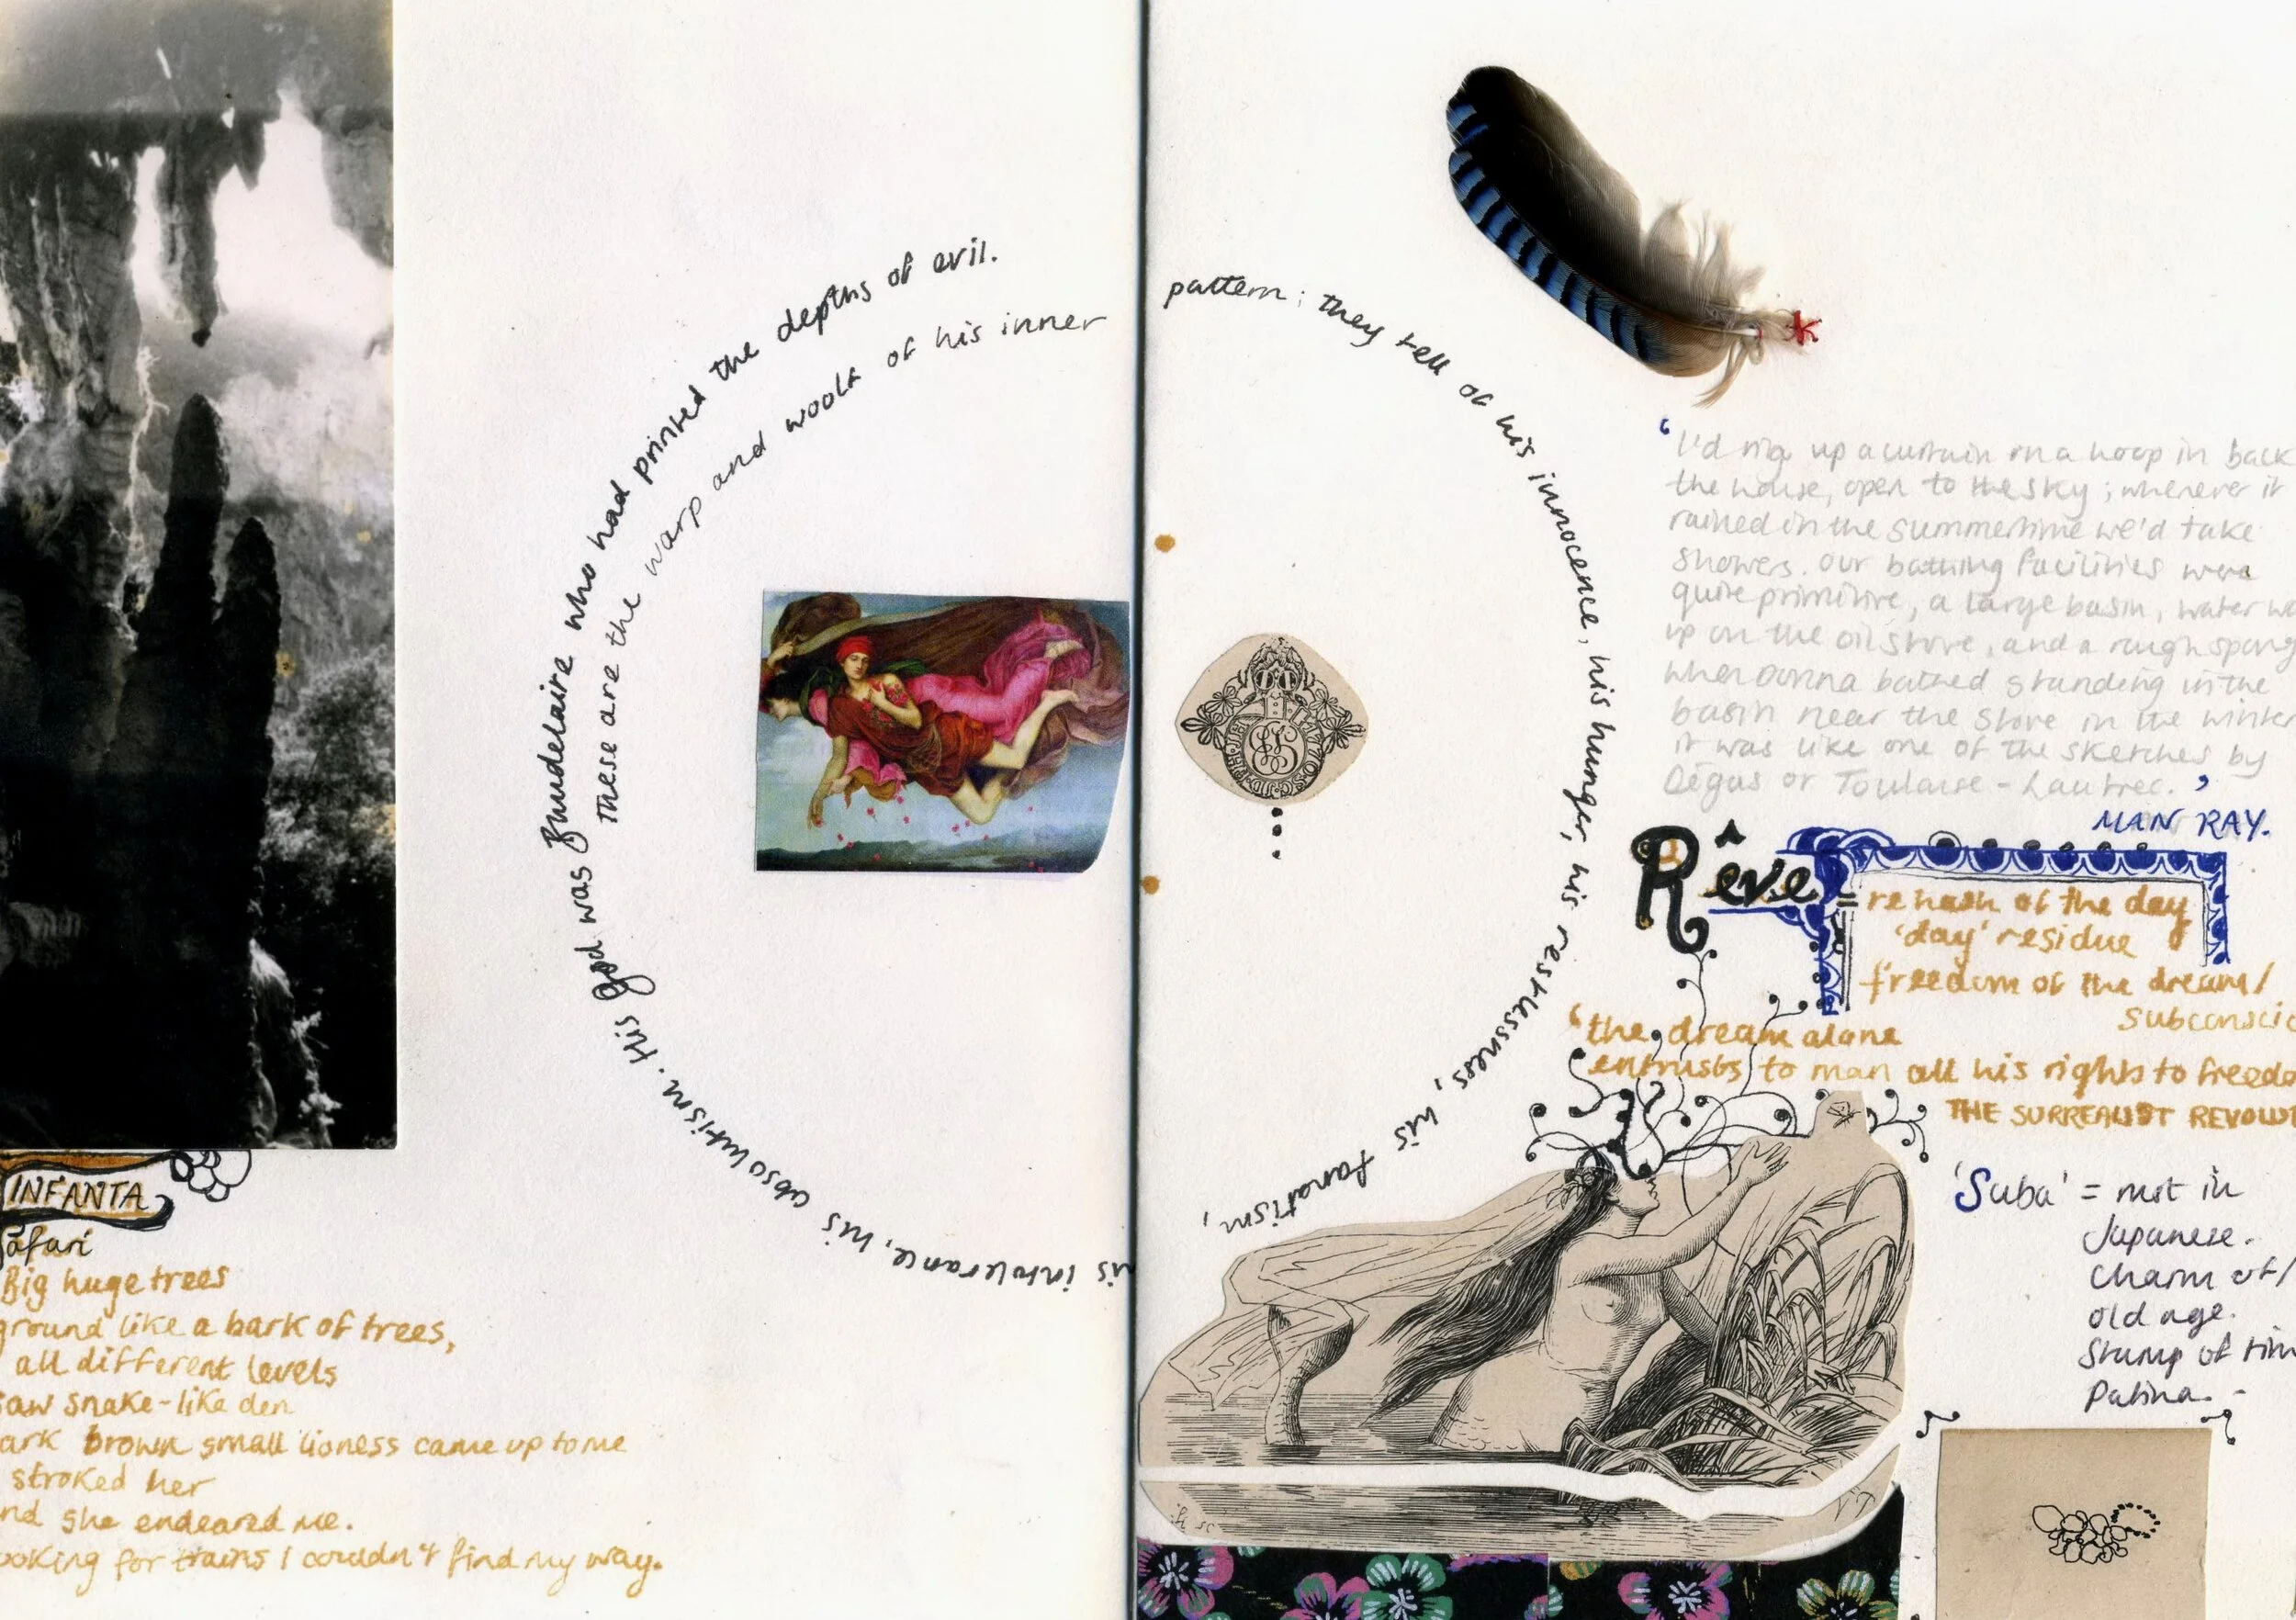 These are the warp and woolf of his inner
pattern; they tell of his innocence, his hunger, his restlessness, his fanatism,
is intolerance, his absolutism. His god was Baudelaire who had printed the depths of evil.
INFANTA
Safari
Big huge trees
ground like a bark of trees,
all different levels
saw snake-like den
ark brown small lioness came up to me
stroked her
nd she endeared me.
ooking for trains I couldn't find my way.
'I'd rig up a curtain on a hoop in back
the house, open to the sky; whenever it
rained in the summertime we'd take
showers. Our bathing facilities were
quite primitive, a large basin, water wa
up on the oil stove, and a rough spong
when Donna bathed standing in the
basin near the stove in the winter
it was like one of the sketches by
Degas or Toulouse-Lautrec.'
MAN RAY.
Rêve
= rehash of the day
'day' residue
freedom of the dream/
subconscio
'the dream alone
entrusts to man all his rights to freedo
THE SURREALIST REVOLU
'Suba' = rust in
Japanese.
Charm of/
old age.
Stamp of tim
Patina. -